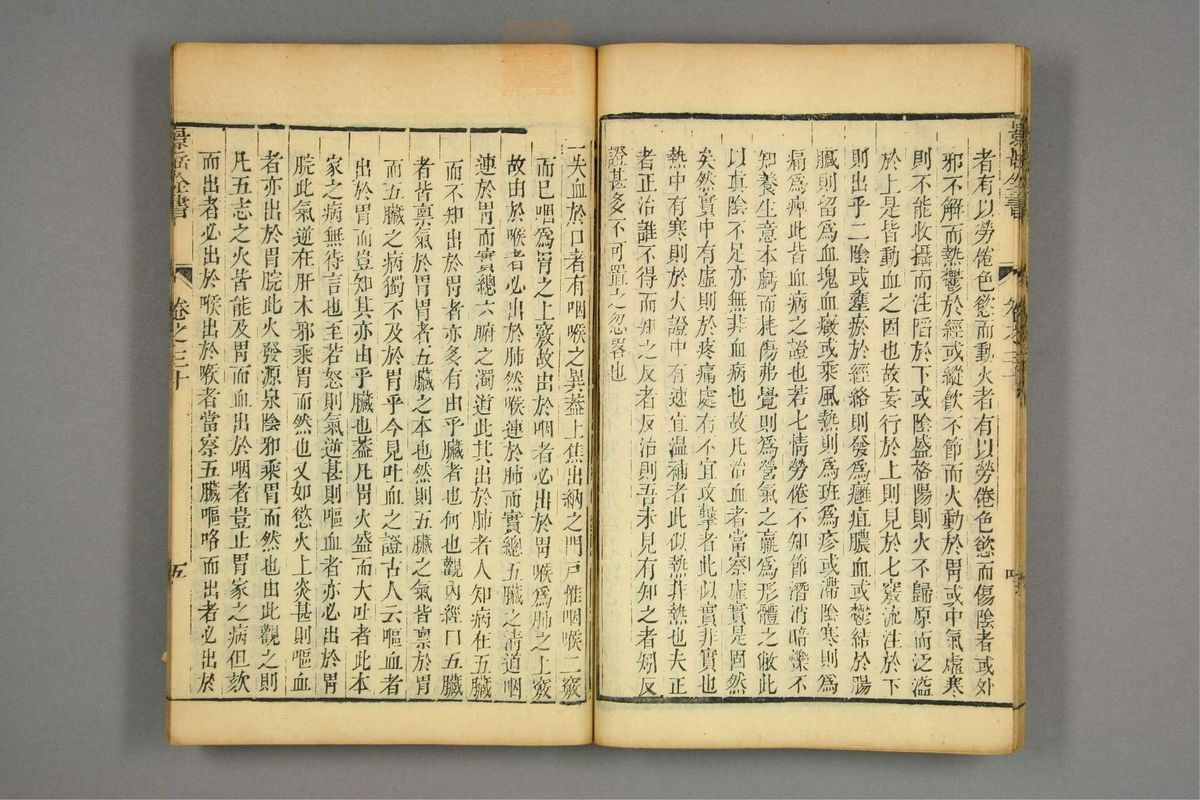 景岳全書
卷之三十
者有以勞倦色慾而動火者有以勞倦色慾而傷陰者或外
邪不解而熱鬱於經或縱飲不節而火動於胃或中氣虛寒
則不能收攝而注陷於下或陰盛格陽則火不歸原而泛溢
於上是皆動血之因也故妄行於上則見於七竅流注於下
則出乎二陰或壅瘀於經絡則發為癰疽膿血或鬱結於腸
臟則留為血塊血癥或乘風熱則為班為疹或滯陰寒則為
痛為痺此皆血病之證也若七情勞倦不知節潛消暗爍不
知養生意本虧而耗傷弗覺則為營氣之羸為形體之敝此
以真陰不足亦無非血病也故凡治血者當察虛實是固然
矣然實中有虛則於疼痛處有不宜攻擊者此似實非實也
熱中有寒則於火證中有速宜温補者此似熱非熱也夫正
者正治誰不得而知之反者反治則吾未見有知之者矧反
證甚多不可置之忽畧也
一失血於口者有咽喉之異葢上焦出納之門戶惟咽喉二竅
而巳咽為胃之上竅故出於咽者必出於胃喉為肺之上竅
故由於喉者必出於肺然喉連於肺而實總五臟之清道咽
連於胃而實總六腑之濁道此其出於肺者人知病在五臟
而不知出於胃者亦多有由乎臟者也何也觀內經曰五臟
者皆禀氣於胃胃者五臟之本也然則五臟之氣皆禀於胃
而五臟之病獨不及於胃乎今見吐血之證古人云嘔血者
出於胃而豈知其亦由乎臟也葢凡胃火盛而大吐者此本
家之病無待言也至若怒則氣逆甚則嘔血者亦必出於胃
脘此氣逆在肝木邪乘胃而然也又如慾火上炎甚則嘔血
者亦出於胃脘此火發源泉陰邪乘胃而然也由此觀之則
凡五志之火皆能及胃而血出於咽者豈止胃家之病但欬
而出者必出於喉出於喉者當察五臟嘔咯而出者必出於
景岳全書
卷之三十
五